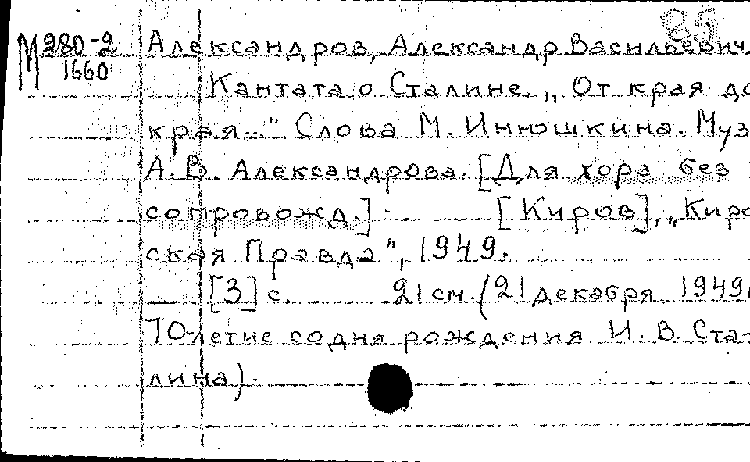 85
М 280-2
1660
Александров, Александр Васильевич.
Кантата о Сталине. „От края до
края..." Слова М. Инюшкина. Муз
А. В. Александрова. [Для хора без
сопровожд.] [Киров], „Киров
ская Правда", 1949.
[3] с. 21 см (21 декабря 1949
70-летие со дня рождения И. В. Ста-
лина)